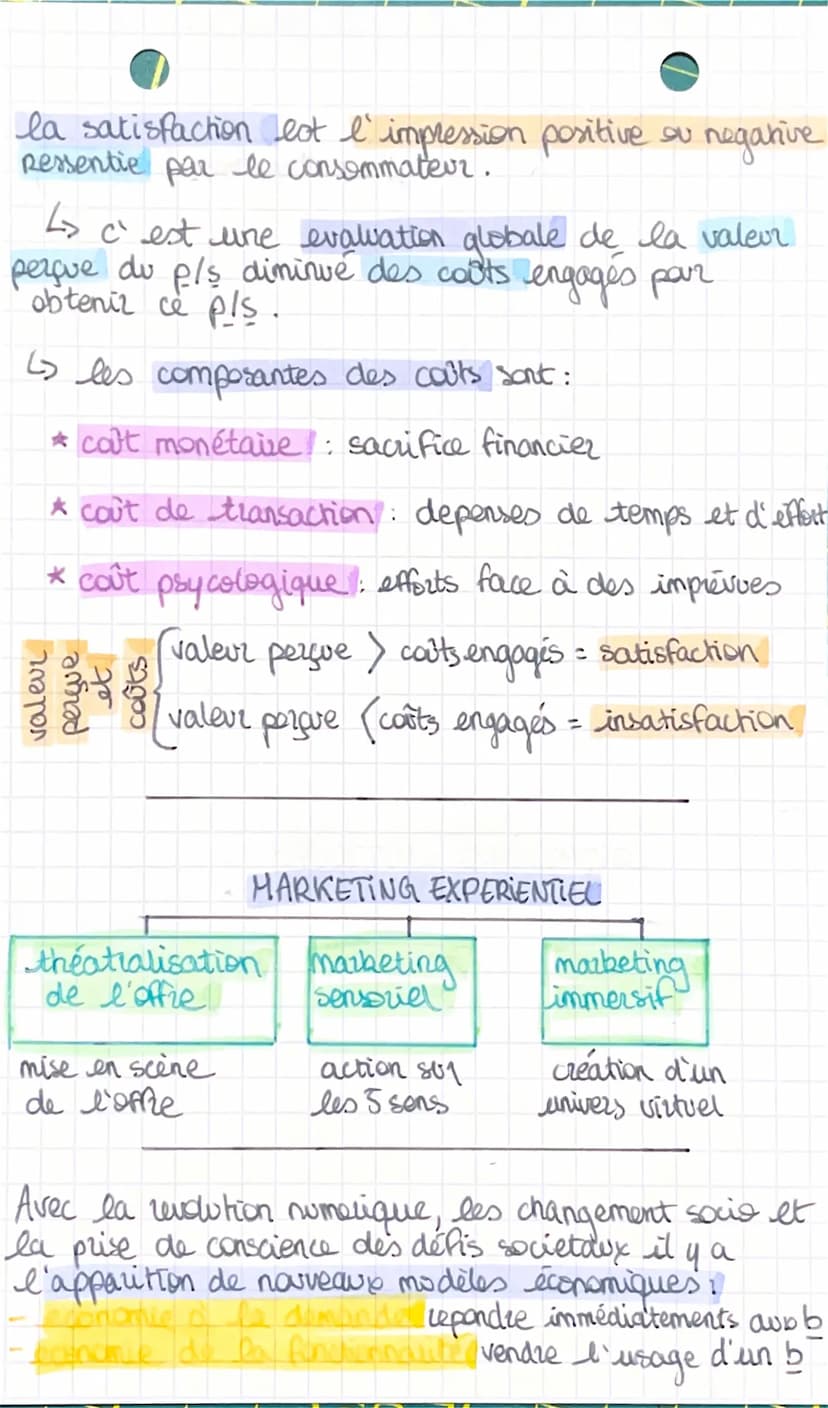 la satisfaction est l'impression positive ou negative
ressentie par le consommateur.
↳ c'est une evaluation globale de la valeur
perçue du p/s diminué des coûts engagés pour
obtenir ce p/s.
↳ les composantes des coûts sont :
* coût monétaire : sacrifice financier
* coût de transaction : depenses de temps et d'effort
* coût psycologique : efforts face à des imprévues
valeur perçue et coûts
valeur perçue > coûts engagés = satisfaction
valeur perçue < coûts engagés = insatisfaction
MARKETING EXPERIENTIEL
théatralisation
de l'offre
mise en scène
de l'offre
marketing
sensoriel
action sur
les 5 sens
marketing
immersif
création d'un
univers virtuel
Avec la revolution numerique, les changement socio et
la prise de conscience des défis societaux il y a
l'apparition de nouveaux modèles économiques :
- economie à la demande repondre immédiatements aux b
- economie de la fonctionnalité vendre l'usage d'un b